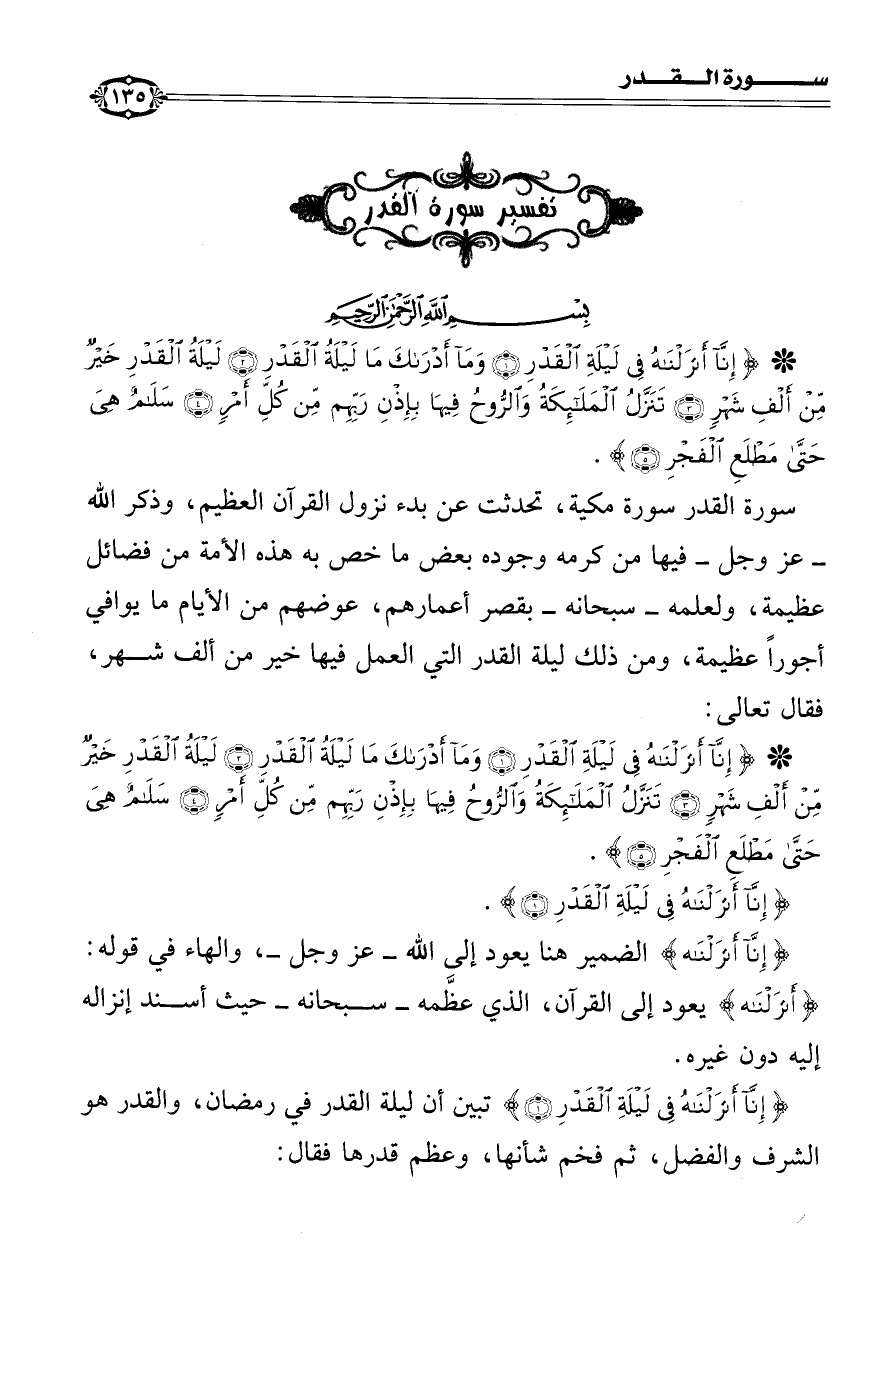 ســــورة الــقــدر
١٣٥
تفسير سورة القدر
بِسْـــــمِ ٱللَّهِ ٱلرَّحْمَٰنِ ٱلرَّحِيمِ
* ﴿ إِنَّآ أَنزَلْنَٰهُ فِى لَيْلَةِ ٱلْقَدْرِ ١ وَمَآ أَدْرَىٰكَ مَا لَيْلَةُ ٱلْقَدْرِ ٢ لَيْلَةُ ٱلْقَدْرِ خَيْرٌ
مِّنْ أَلْفِ شَهْرٍ ٣ تَنَزَّلُ ٱلْمَلَٰٓئِكَةُ وَٱلرُّوحُ فِيهَا بِإِذْنِ رَبِّهِم مِّن كُلِّ أَمْرٍ ٤ سَلَٰمٌ هِىَ
حَتَّىٰ مَطْلَعِ ٱلْفَجْرِ ٥ ﴾ .
سورة القدر سورة مكية، تحدثت عن بدء نزول القرآن العظيم، وذكر الله
ـ عز وجل ـ فيها من كرمه وجوده بعض ما خص به هذه الأمة من فضائل
عظيمة، ولعلمه ـ سبحانه ـ بقصر أعمارهم، عوضهم من الأيام ما يوافي
أجوراً عظيمة، ومن ذلك ليلة القدر التي العمل فيها خير من ألف شــهر،
فقال تعالى:
* ﴿ إِنَّآ أَنزَلْنَٰهُ فِى لَيْلَةِ ٱلْقَدْرِ ١ وَمَآ أَدْرَىٰكَ مَا لَيْلَةُ ٱلْقَدْرِ ٢ لَيْلَةُ ٱلْقَدْرِ خَيْرٌ
مِّنْ أَلْفِ شَهْرٍ ٣ تَنَزَّلُ ٱلْمَلَٰٓئِكَةُ وَٱلرُّوحُ فِيهَا بِإِذْنِ رَبِّهِم مِّن كُلِّ أَمْرٍ ٤ سَلَٰمٌ هِىَ
حَتَّىٰ مَطْلَعِ ٱلْفَجْرِ ٥ ﴾ .
﴿ إِنَّآ أَنزَلْنَٰهُ فِى لَيْلَةِ ٱلْقَدْرِ ١ ﴾ .
﴿ إِنَّآ أَنزَلْنَٰهُ ﴾ الضمير هنا يعود إلى الله ـ عز وجل ـ، والهاء في قوله:
﴿ أَنزَلْنَٰهُ ﴾ يعود إلى القرآن، الذي عظَّمه ـ ســبحانه ـ حيث أســند إنزاله
إليه دون غيره.
﴿ إِنَّآ أَنزَلْنَٰهُ فِى لَيْلَةِ ٱلْقَدْرِ ١ ﴾ تبين أن ليلة القدر في رمضان، والقدر هو
الشرف والفضل، ثم فخم شأنها، وعظم قدرها فقال: